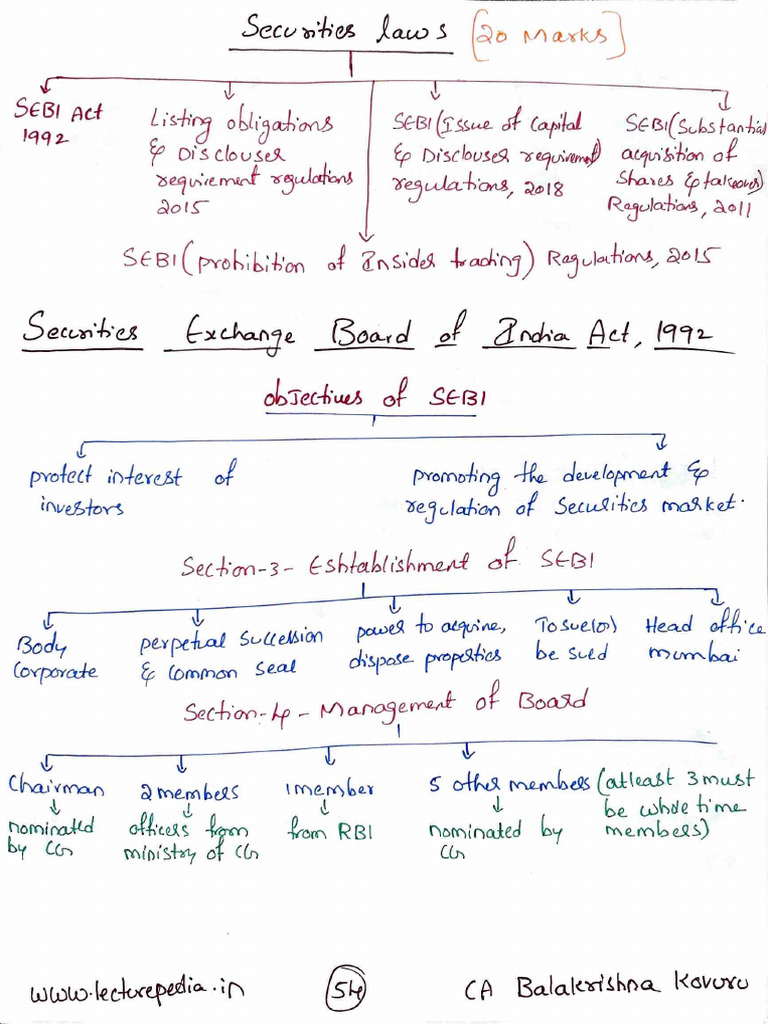 Securities laws [20 Marks]
SEBI Act
1992
Listing obligations
& Disclouser
requirement regulations
2015
SEBI (Issue of capital
& Disclouser requirement)
regulations, 2018
SEBI (Substantial
acquisition of
Shares & takeovers)
Regulations, 2011
SEBI (prohibition of Insider trading) Regulations, 2015
Securities Exchange Board of India Act, 1992
objectives of SEBI
protect interest of
investors
promoting the development &
regulation of Securities market.
Section-3 - Eshtablishment of SEBI
Body
Corporate
perpetual Succession
& Common Seal
power to acquine,
dispose properties
To sue (or)
be sued
Head office
mumbai
Section-4 - Management of Board
Chairman
nominated
by CG
2 members
officers from
ministry of CG
1 member
from RBI
5 other members (atleast 3 must
be whole time
members)
nominated by
CG
www.lecturepedia.in
54
CA Balakrishna Kovuru